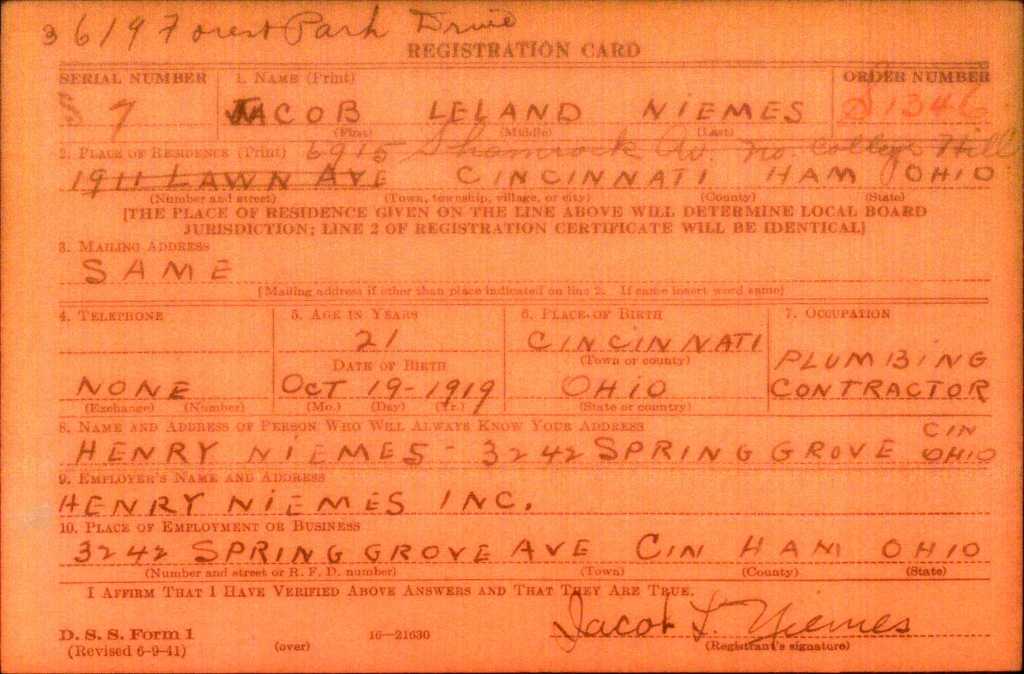 3619 Forest Park Drive
REGISTRATION CARD
SERIAL NUMBER 1. NAME (Print) ORDER NUMBER
S 7 JACOB LELAND NIEMES S1346
(First) (Middle) (Last)
2. PLACE OF RESIDENCE (Print) 6915 Shamrock Av. No College Hill
1911 LAWN AVE CINCINNATI HAM OHIO
(Number and street) (Town, township, village, or city) (County) (State)
[THE PLACE OF RESIDENCE GIVEN ON THE LINE ABOVE WILL DETERMINE LOCAL BOARD
JURISDICTION; LINE 2 OF REGISTRATION CERTIFICATE WILL BE IDENTICAL]
3. MAILING ADDRESS
SAME
[Mailing address if other than place indicated on line 2. If same insert word same]
4. TELEPHONE 5. AGE IN YEARS 6. PLACE OF BIRTH 7. OCCUPATION
21 CINCINNATI
(Town or county) PLUMBING
DATE OF BIRTH
NONE OCT 19-1919 OHIO CONTRACTOR
(Exchange) (Number) (Mo.) (Day) (Yr.) (State or country)
8. NAME AND ADDRESS OF PERSON WHO WILL ALWAYS KNOW YOUR ADDRESS
HENRY NIEMES - 3242 SPRING GROVE CIN OHIO
9. EMPLOYER'S NAME AND ADDRESS
HENRY NIEMES INC.
10. PLACE OF EMPLOYMENT OR BUSINESS
3242 SPRING GROVE AVE CIN HAM OHIO
(Number and street or R. F. D. number) (Town) (County) (State)
I AFFIRM THAT I HAVE VERIFIED ABOVE ANSWERS AND THAT THEY ARE TRUE.
Jacob L. Niemes
D. S. S. Form 1 16-21630
(Revised 6-9-41) (over) (Registrant's signature)